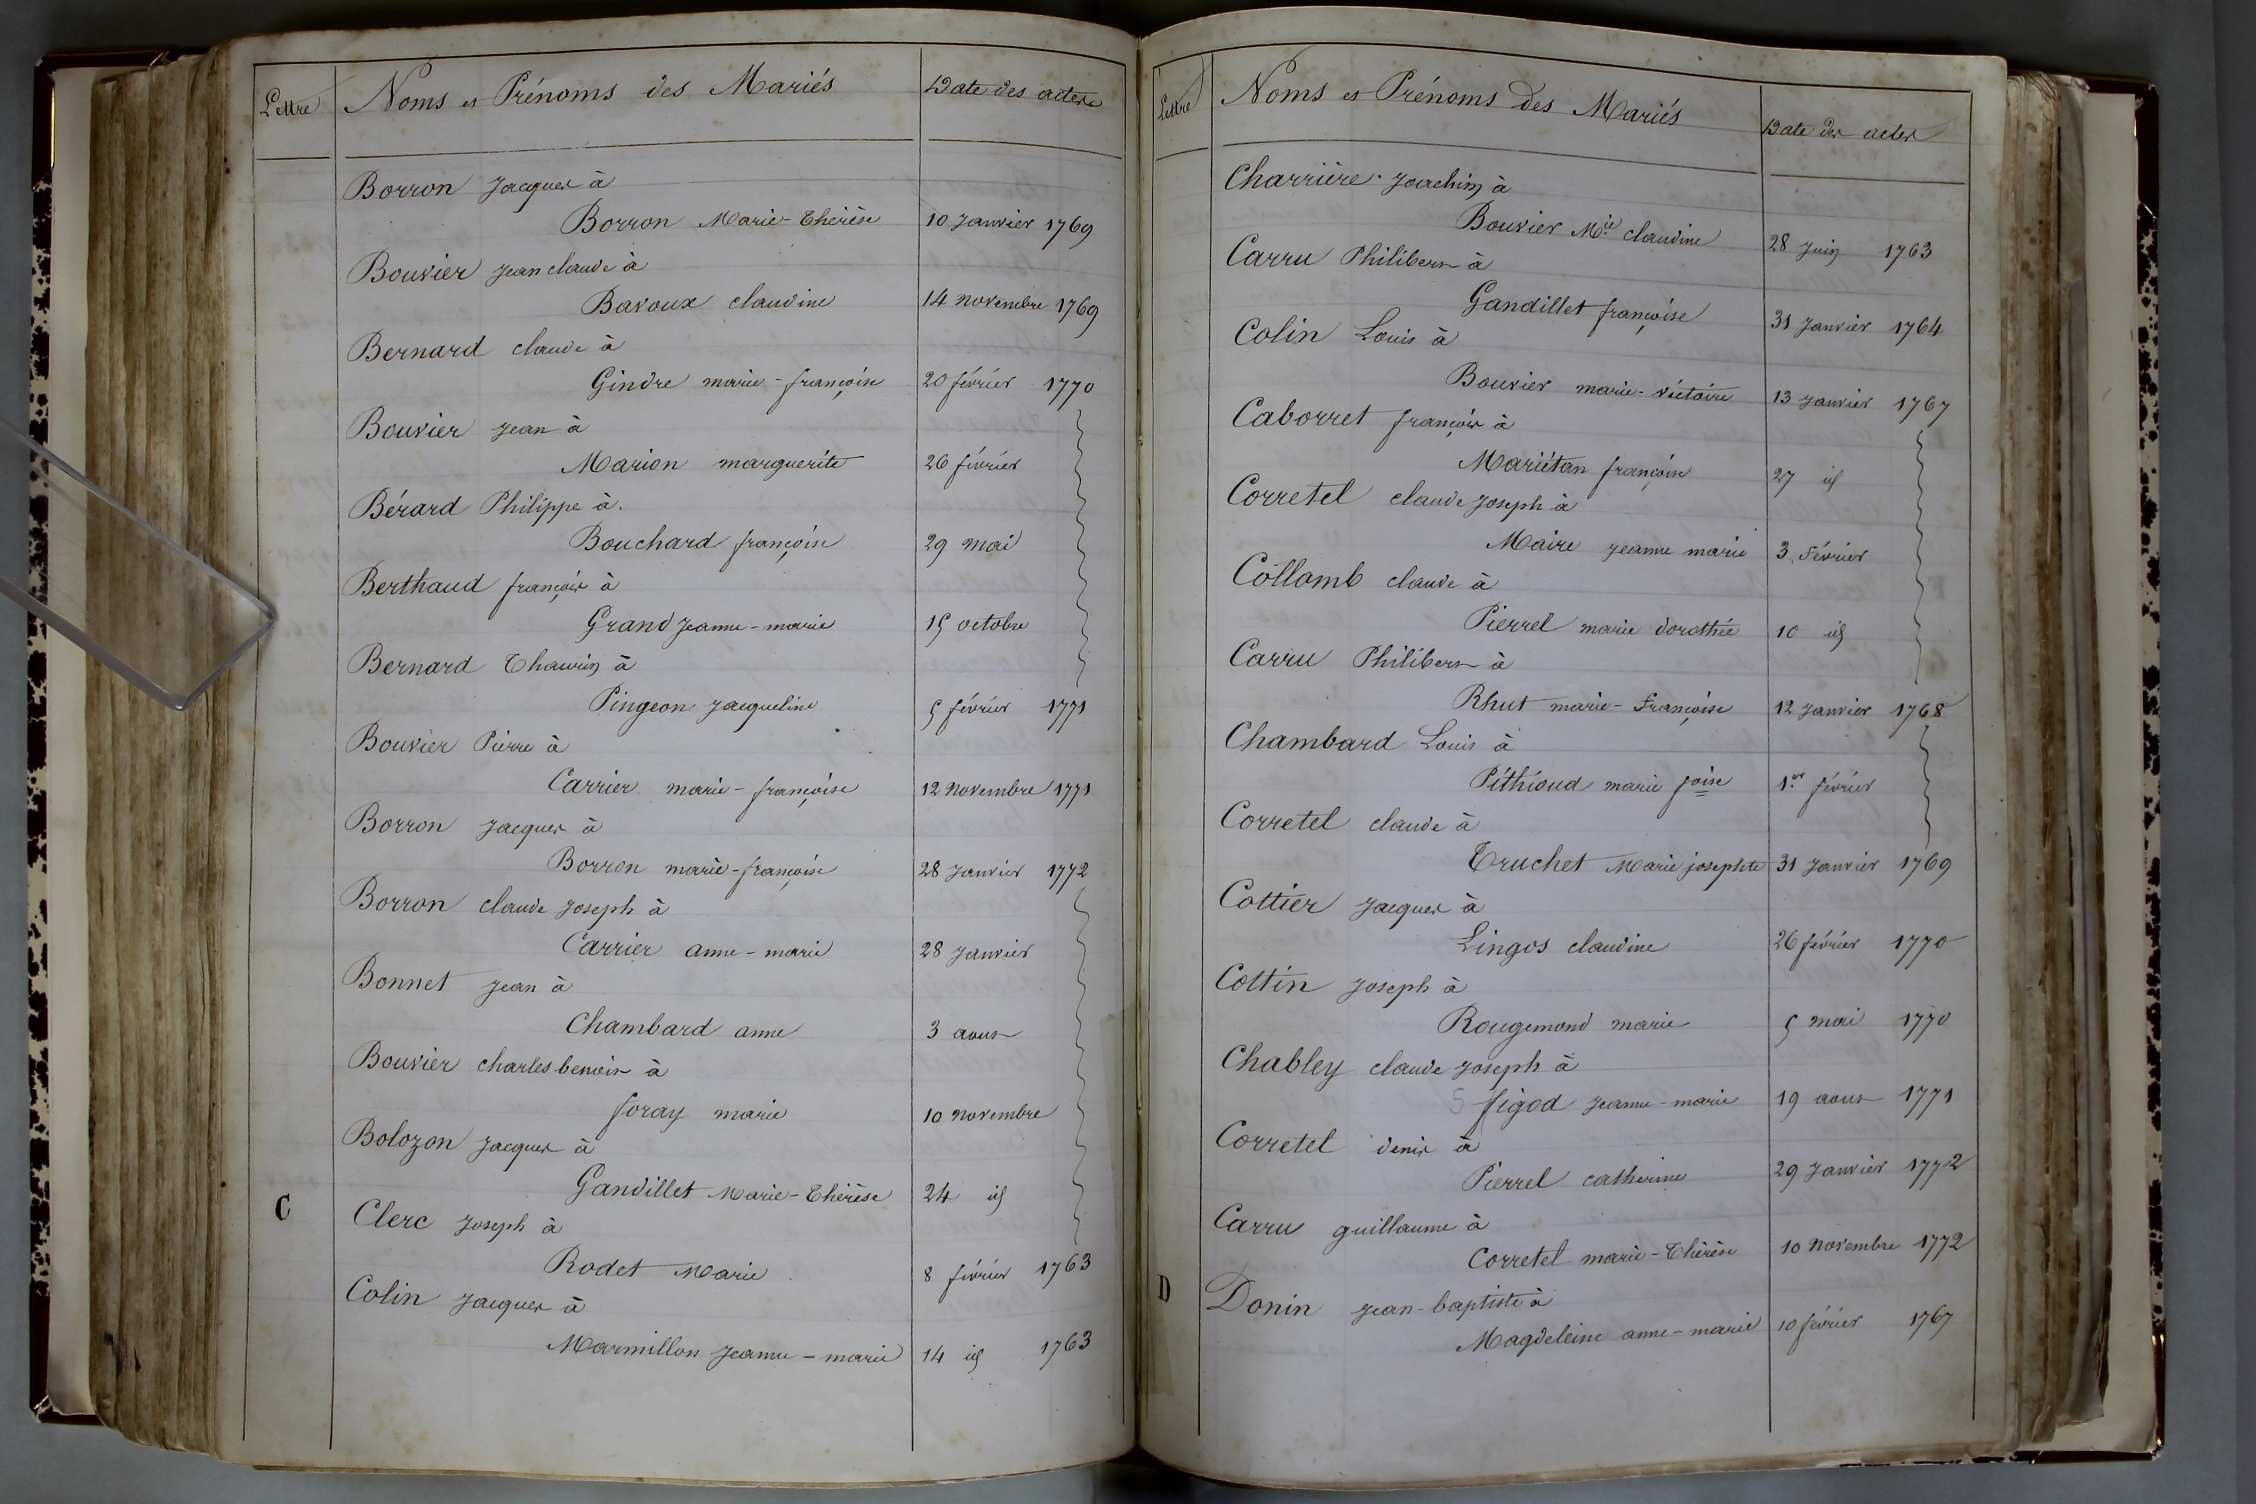 Lettre Noms et Prénoms des Mariés Date des actes
Borron Jacques à
Borron Marie-Thérèse 10 Janvier 1769
Bouvier Jean claude à
Bavoux claudine 14 Novembre 1769
Bernard claude à
Gindre marie-françoise 20 février 1770
Bouvier Jean à
Marion marguerite 26 février
Bérard Philippe à
Bouchard françoise 29 mai
Berthaud françois à
Grand Jeanne-marie 15 octobre
Bernard Thaurin à
Pingeon Jacqueline 5 février 1771
Bouvier Pierre à
Carrier marie-françoise 12 Novembre 1771
Borron Jacques à
Borron marie-françoise 28 Janvier 1772
Borron claude Joseph à
Carrier anne-marie 28 Janvier
Bonnet Jean à
Chambard anne 3 aout
Bouvier charles benoit à
foray marie 10 Novembre
Bolozon Jacques à
Gandillet Marie-Thérèse 24 id
C Clerc Joseph à
Rodet Marie 8 février 1763
Colin Jacques à
Marmillon Jeanne-marie 14 id 1763
Lettre Noms et Prénoms des Mariés Date des actes
Charrière Joachim à
Bouvier Mie claudine 28 Juin 1763
Carru Philibert à
Gandillet françoise 31 Janvier 1764
Colin Louis à
Bouvier marie-victoire 13 Janvier 1767
Caborret françois à
Mariétan françoise 27 id
Corretel claude Joseph à
Maire Jeanne marie 3 Février
Collomb claude à
Pierrel marie dorothée 10 id
Carru Philibert à
Rhut marie-Françoise 12 Janvier 1768
Chambard Louis à
Pithioud marie foise 1er février
Corretel claude à
Truchet Marie josephte 31 Janvier 1769
Cottier Jacques à
Lingos claudine 26 février 1770
Cottin Joseph à
Rougemond marie 5 mai 1770
Chabley claude Joseph à
figod Jeanne-marie 19 aout 1771
Corretel denis à
Pierrel catherine 29 Janvier 1772
Carru guillaume à
Corretel marie-Thérèse 10 Novembre 1772
D Donin Jean-baptiste à
Magdeleine anne-marie 10 février 1767